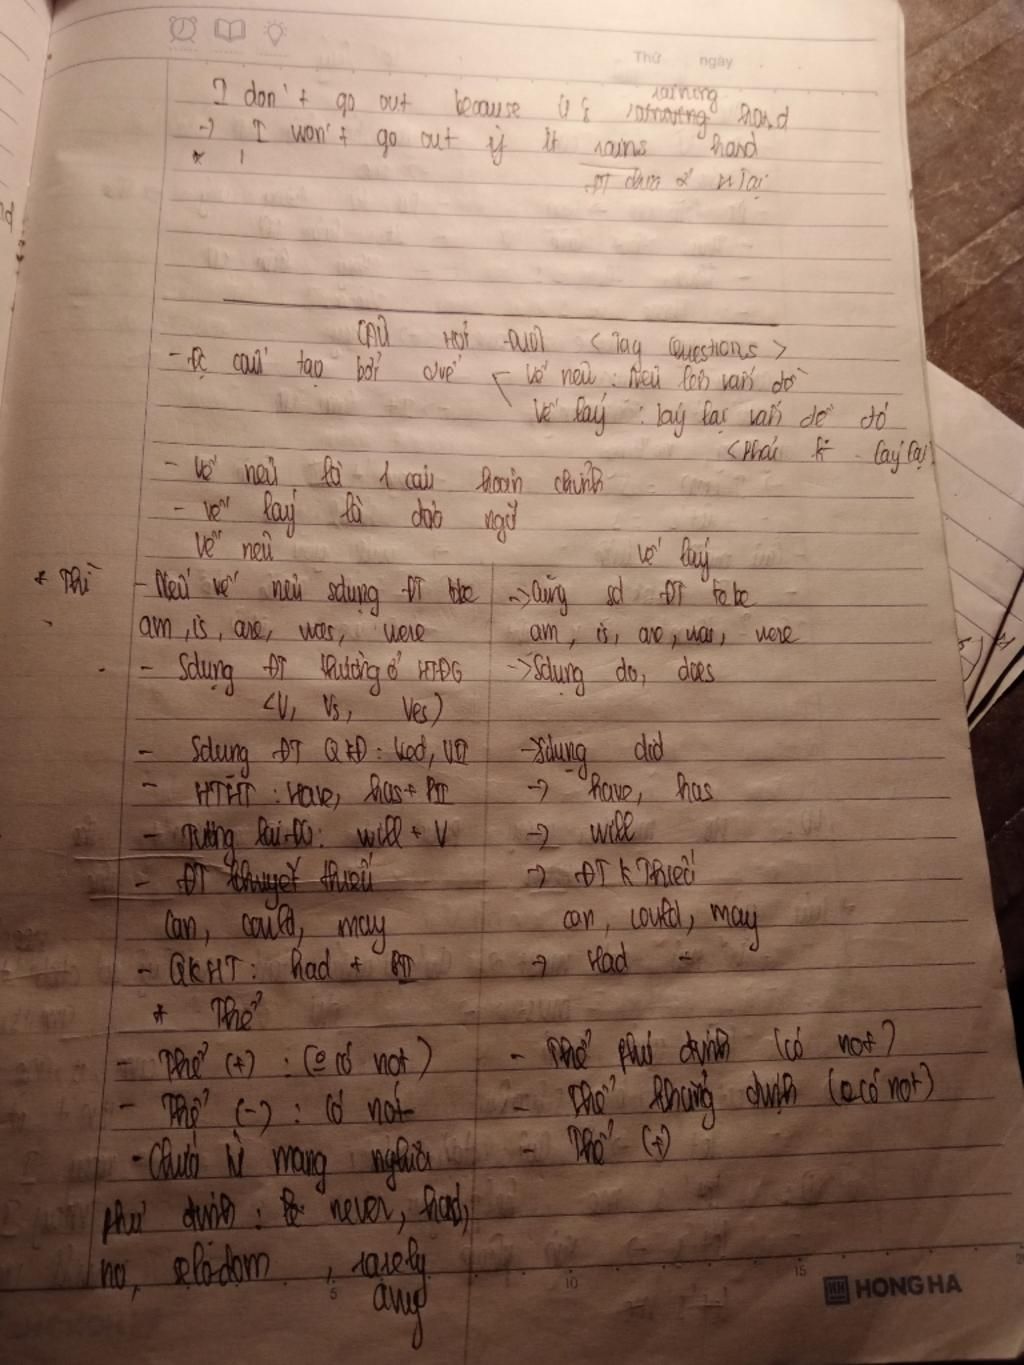 Thứ ngày
I don't go out because raining hard
→ I won't go out if it rains hard
ĐT chia ở H Tại
CÂU HỎI ĐUÔI <Tag Questions>
- Đc cấu tạo bởi 2 vế vế nêu : Nêu lên vấn đề
vế láy : láy lại vấn đề đó
<phải láy lại
- vế nêu là 1 câu hoàn chỉnh
- vế láy là đảo ngữ
Vế nêu vế láy
* Thì - Nếu vế nêu sdụng ĐT tobe → cũng sd ĐT to be
am, is, are, was, were am, is, are, was, were
- Sdụng ĐT thường ở HTĐG → Sdụng do, does
<V, Vs, Ves)
- Sdung ĐT QKĐ : Ved, VII → Sdụng did
- HTHT : Have, has + PII → have, has
- Tương lai Đ : will + V → will
- ĐT khuyết thiếu → ĐT k Thiếu
Can, could, may can, could, may
- QKHT : had + PII → Had
* Thể
- Thể (+) : (o có not) - Thể phủ định (có not)
- Thể (-) : có not - Thể khẳng định (o có not)
- Chứa từ mang nghĩa - Thể (+)
phủ định : never, hard,
no, rarely
any
5 10 15 20
HONG HA